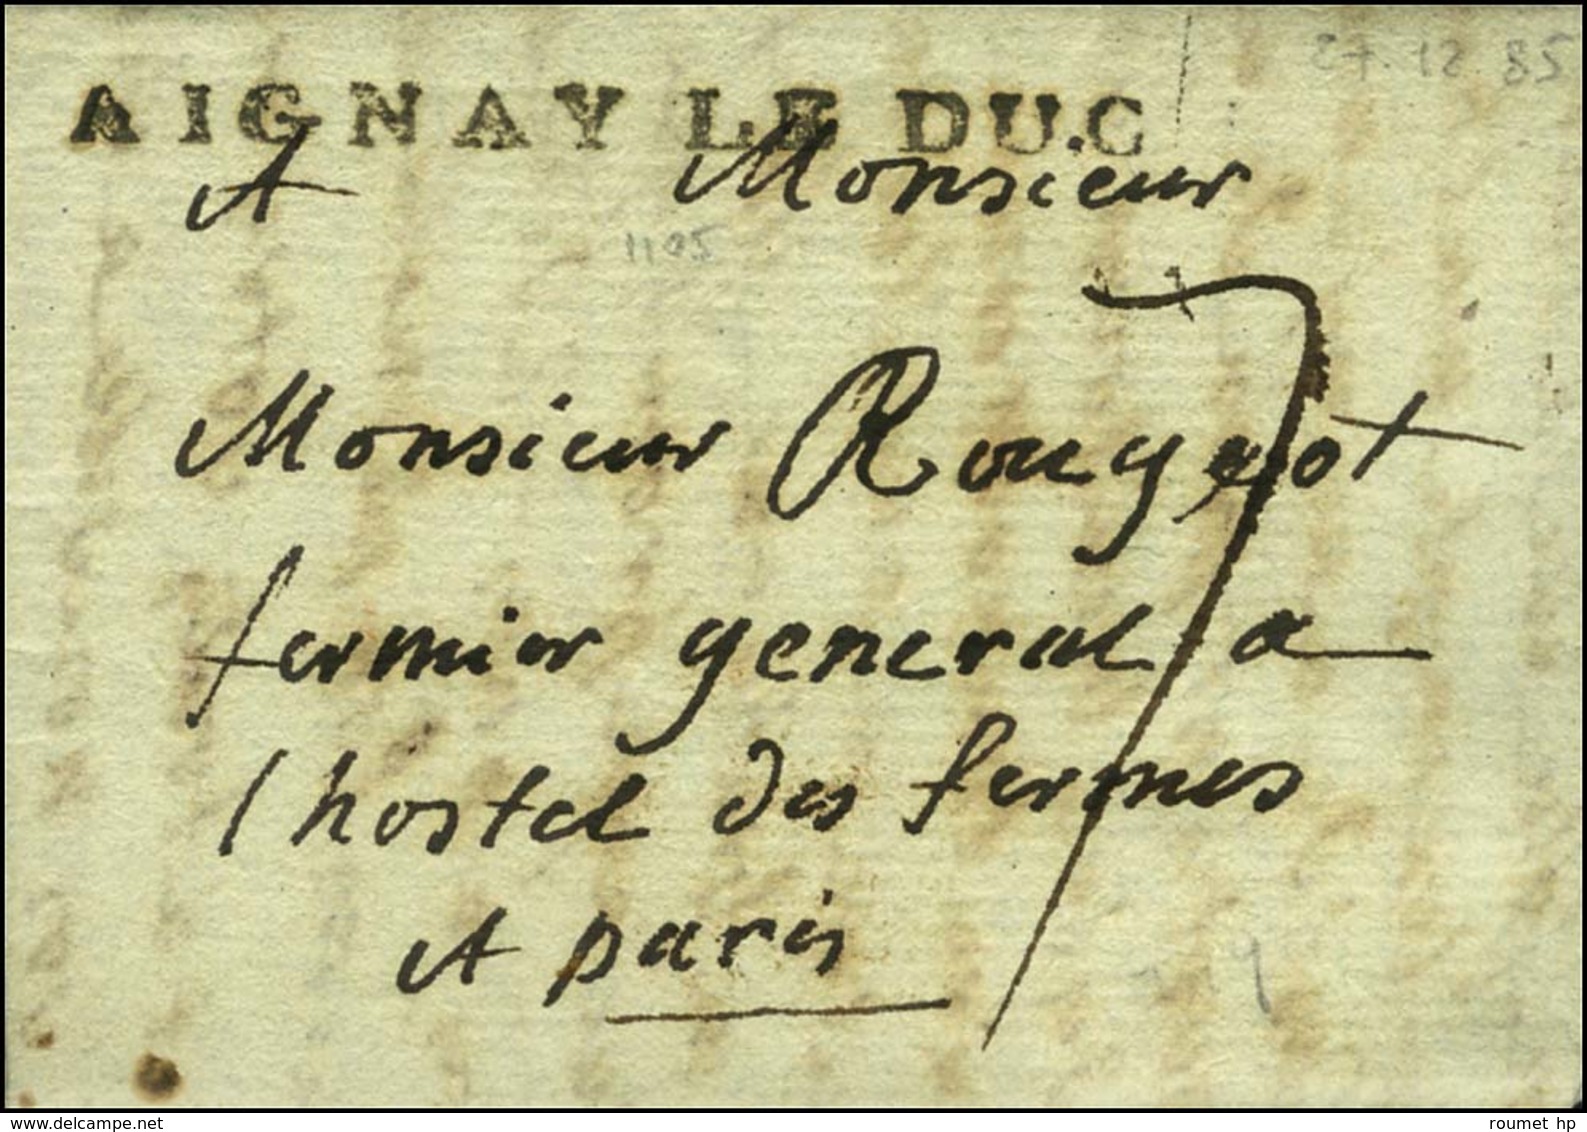 27.12.85
AIGNAY LE DUC
A Monsieur
1105
7
Monsieur Rougeot
fermier general a
l hostel des fermes
A paris
www.delcampe.net
roumet hp